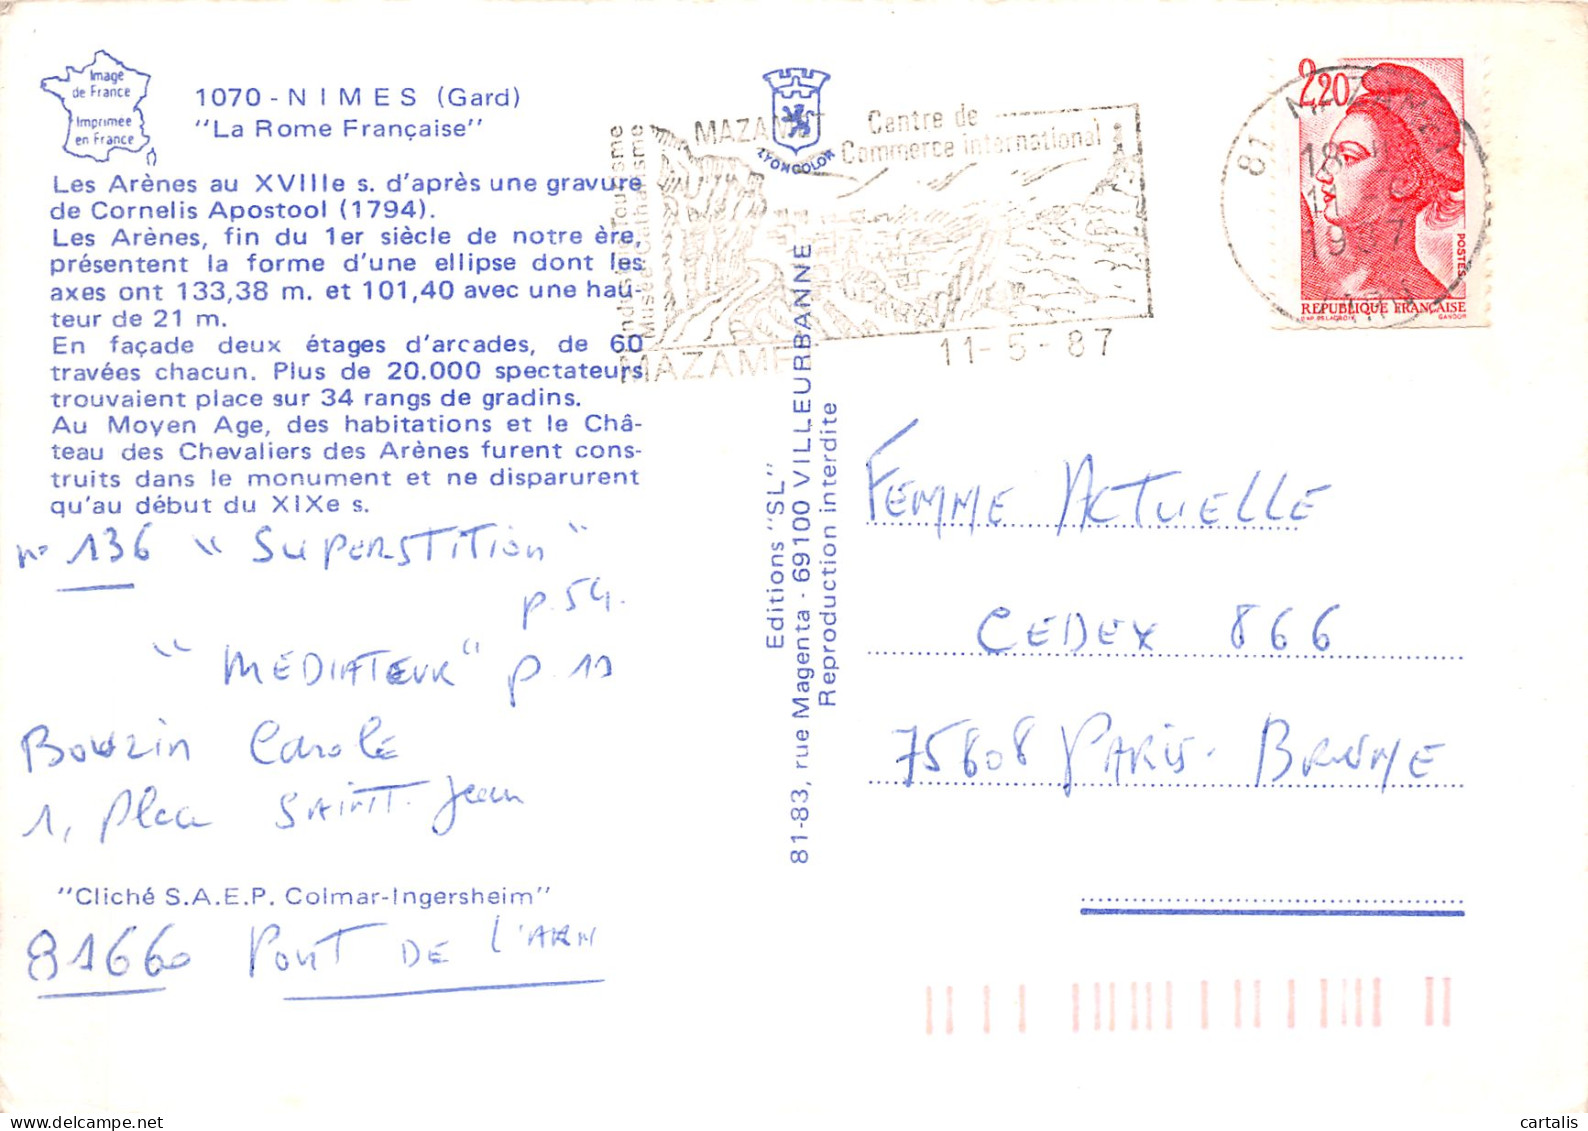 Image
de France
Imprimée
en France
1070 - NIMES (Gard)
"La Rome Française"
Les Arènes au XVIIIe s. d'après une gravure
de Cornelis Apostool (1794).
Les Arènes, fin du 1er siècle de notre ère,
présentent la forme d'une ellipse dont les
axes ont 133,38 m. et 101,40 avec une hau-
teur de 21 m.
En façade deux étages d'arcades, de 60
travées chacun. Plus de 20.000 spectateurs
trouvaient place sur 34 rangs de gradins.
Au Moyen Age, des habitations et le Châ-
teau des Chevaliers des Arènes furent cons-
truits dans le monument et ne disparurent
qu'au début du XIXe s.
n° 136 " SUPERSTITION "
p. 54.
" MEDIATEUR " p. 19
Bouzin Carole
1, Place SAINT-Jean
"Cliché S.A.E.P. Colmar-Ingersheim"
81660 PONT DE L'ARN
LYONCOLOR
Editions "SL"
81-83, rue Magenta - 69100 VILLEURBANNE
Reproduction interdite
MAZAMET
Centre de
Commerce international
Tourisme
Musée Catharisme
MAZAMET
11-5-87
81 MAZAMET
18
1987
2,20
POSTES
REPUBLIQUE FRANÇAISE
DELACROIX GANDON
FEMME ACTUELLE
CEDEX 866
75808 PARIS. BRUNE
cartalis